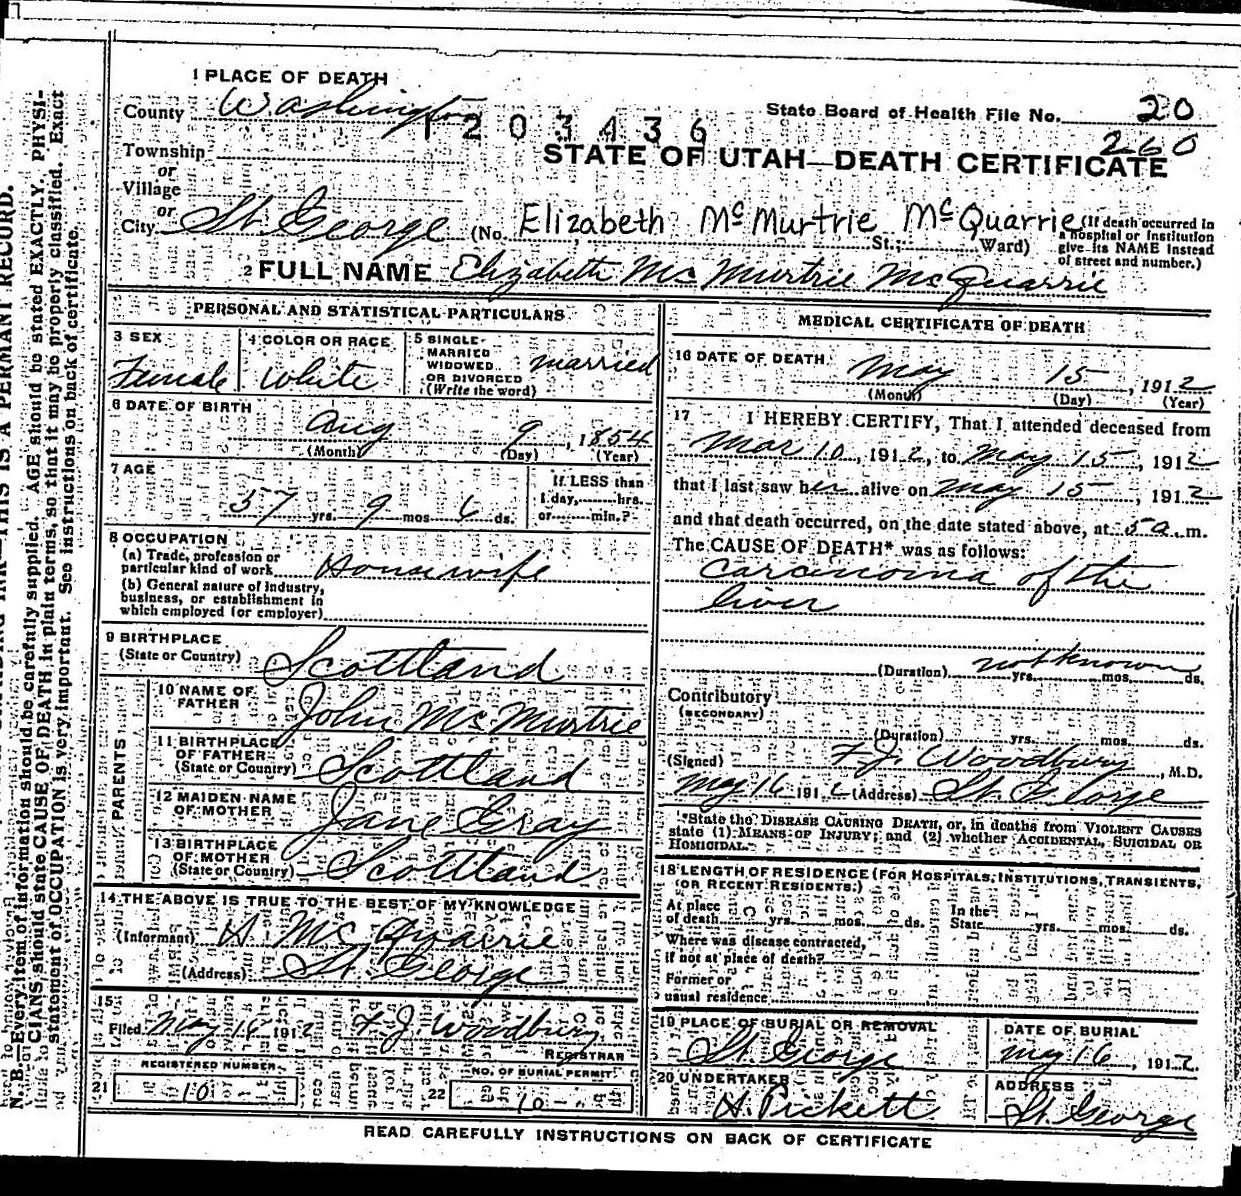 1 PLACE OF DEATH
County Washington
1203436
State Board of Health File No. 20
260
Township
or
Village
or
STATE OF UTAH—DEATH CERTIFICATE
City St. George (No. Elizabeth McMurtrie McQuarrie St.; Ward)
(If death occurred in
a hospital or institution
give its NAME instead
of street and number.)
2 FULL NAME Elizabeth Mc Murtrie McQuarrie
PERSONAL AND STATISTICAL PARTICULARS
3 SEX
Female
4 COLOR OR RACE
White
5 SINGLE
MARRIED
WIDOWED
OR DIVORCED
(Write the word)
married
6 DATE OF BIRTH
Aug 9, 1854
(Month) (Day) (Year)
7 AGE
57 yrs. 9 mos 6 ds.
If LESS than
1 day, hrs.
or min.?
8 OCCUPATION
(a) Trade, profession or
particular kind of work Housewife
(b) General nature of industry,
business, or establishment in
which employed (or employer)
9 BIRTHPLACE
(State or Country) Scottland
PARENTS
10 NAME OF
FATHER John Mc Murtrie
11 BIRTHPLACE
OF FATHER
(State or Country) Scottland
12 MAIDEN NAME
OF MOTHER Jane Gray
13 BIRTHPLACE
OF MOTHER
(State or Country) Scottland
14 THE ABOVE IS TRUE TO THE BEST OF MY KNOWLEDGE
(Informant) Mc Quarrie
(Address) St. George
15
Filed May 16 1912 F. J. Woodbury
REGISTRAR
REGISTERED NUMBER
21 10
NO. OF BURIAL PERMIT
22 10
MEDICAL CERTIFICATE OF DEATH
16 DATE OF DEATH
May 15, 1912
(Month) (Day) (Year)
17 I HEREBY CERTIFY, That I attended deceased from
Mar 10, 1912, to May 15, 1912
that I last saw her alive on May 15, 1912
and that death occurred, on the date stated above, at 5 a. m.
The CAUSE OF DEATH* was as follows:
Carcinoma of the
liver
not known
(Duration) yrs. mos. ds.
Contributory
(SECONDARY)
(Duration) yrs. mos. ds.
(Signed) F. J. Woodbury, M.D.
May 16 1912 (Address) St. George
*State the DISEASE CAUSING DEATH, or, in deaths from VIOLENT CAUSES
state (1) MEANS OF INJURY; and (2) whether ACCIDENTAL, SUICIDAL OR
HOMICIDAL.
18 LENGTH OF RESIDENCE (FOR HOSPITALS, INSTITUTIONS, TRANSIENTS,
OR RECENT RESIDENTS.)
At place
of death yrs. mos. ds.
In the
State yrs. mos. ds.
Where was disease contracted,
if not at place of death?
Former or
usual residence
19 PLACE OF BURIAL OR REMOVAL
St. George
DATE OF BURIAL
May 16, 1912
20 UNDERTAKER
Pickett
ADDRESS
St. George
READ CAREFULLY INSTRUCTIONS ON BACK OF CERTIFICATE
THIS IS A PERMANT RECORD.
N. B.—Every item of information should be carefully supplied. AGE should be stated EXACTLY. PHYSI-
CIANS should state CAUSE OF DEATH in plain terms, so that it may be properly classified. Exact
statement of OCCUPATION is very important. See instructions on back of certificate.